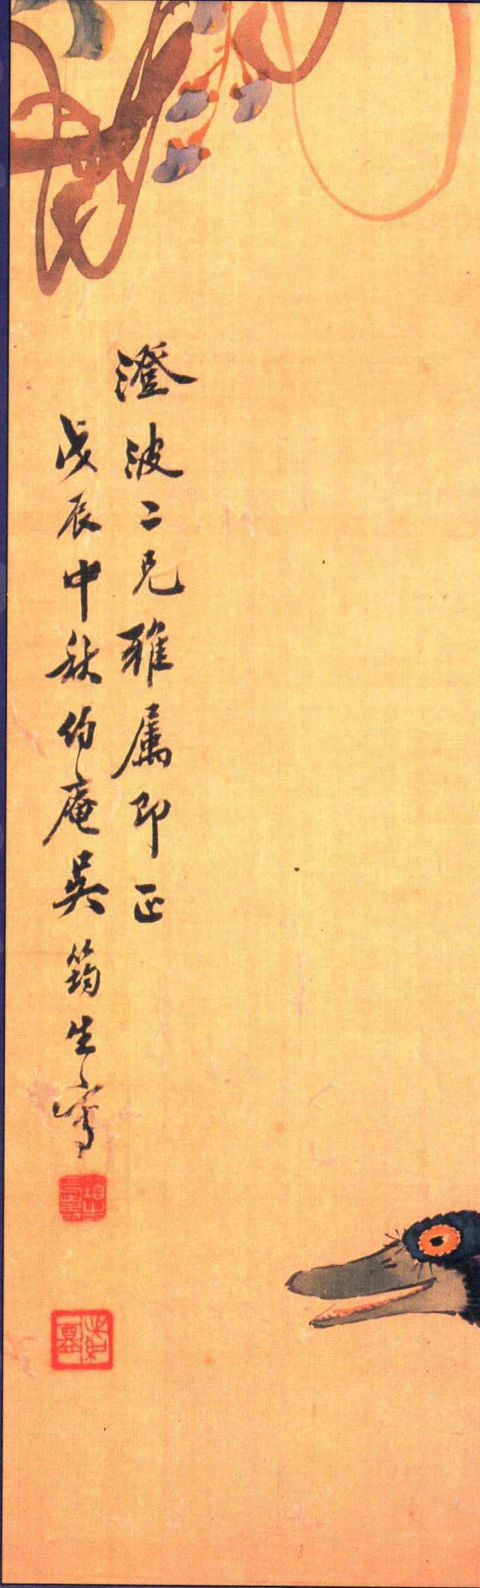 澄波二兄雅属即正
戊辰中秋伯庵吴筠生寫